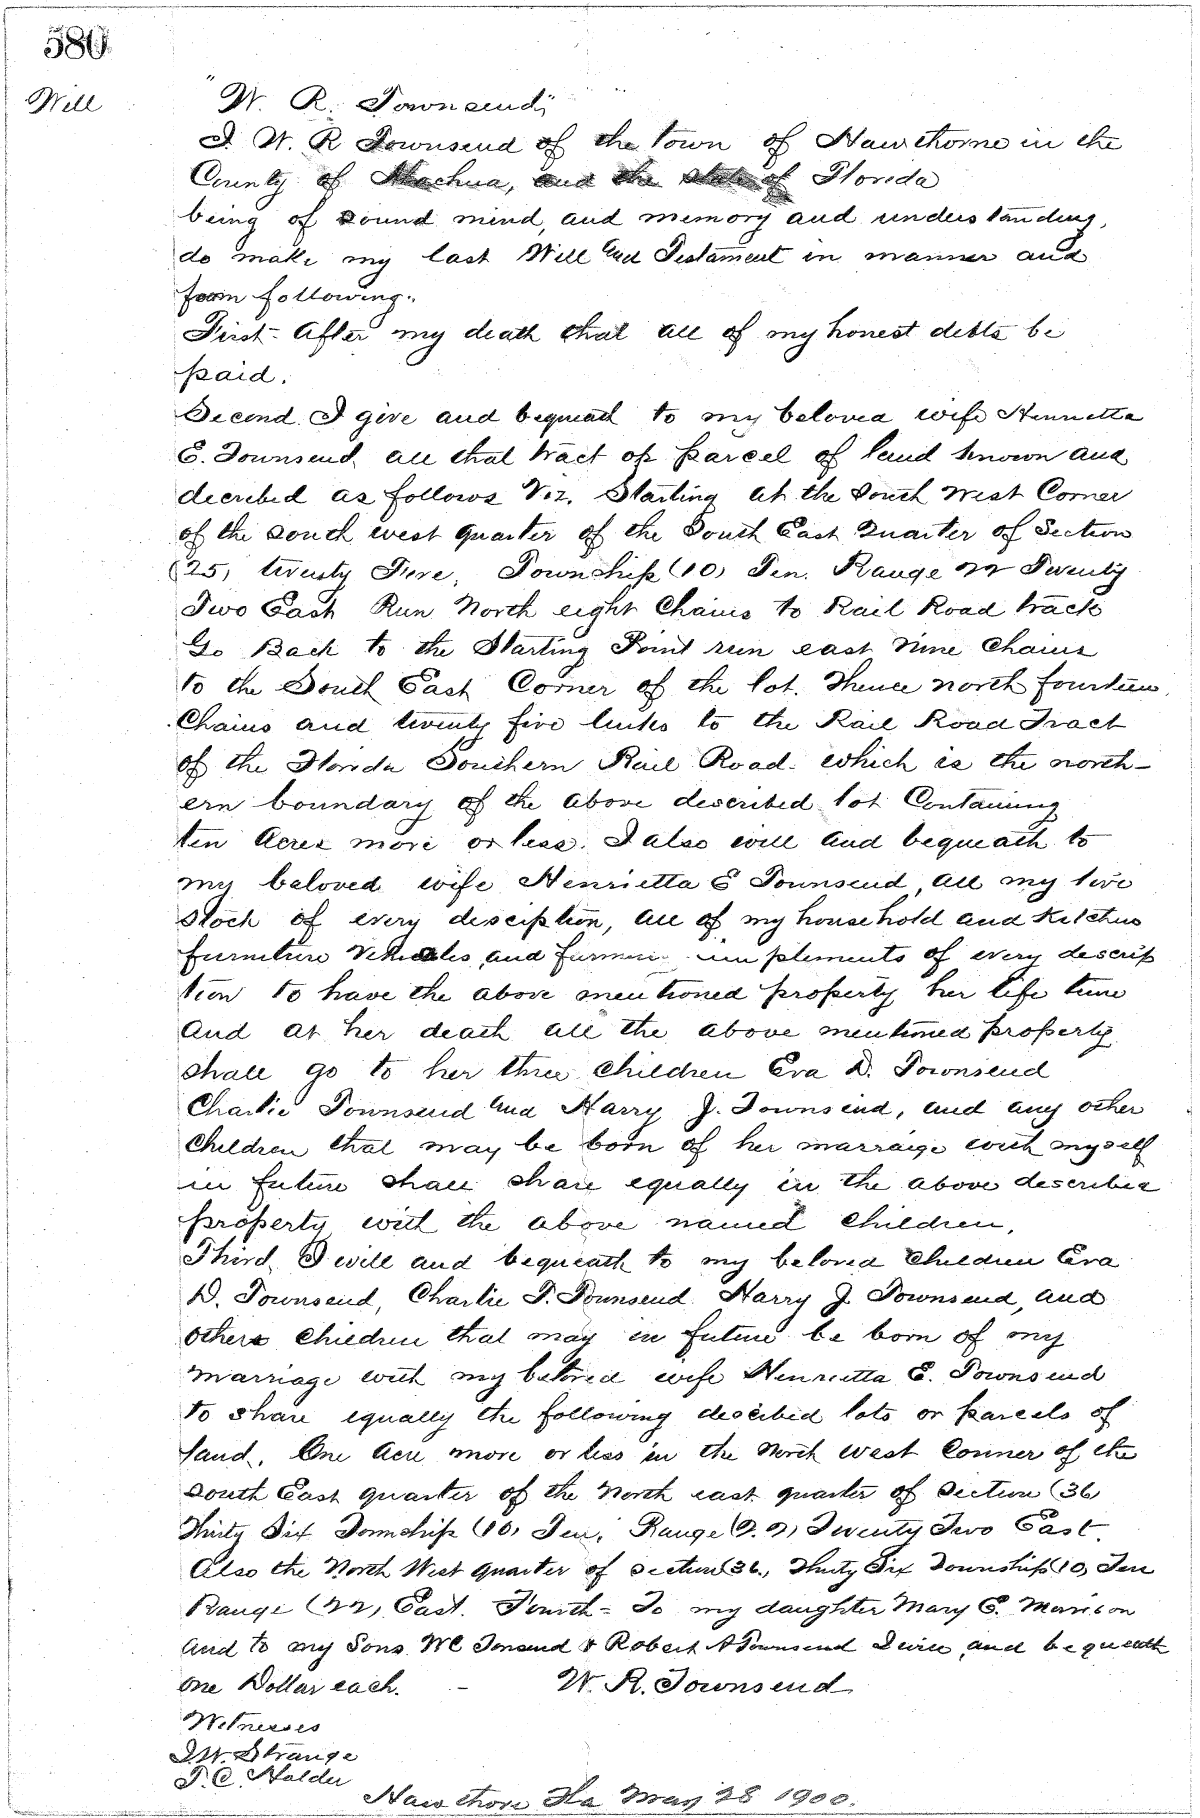 580
Will
"W. R. Townsend"
I W. R Townsend of the town of Hawthorne in the
County of Alachua, and the state of Florida
being of sound mind, and memory and understanding,
do make my last Will and Testament in manner and
form following:
First- After my death that all of my honest debts be
paid.
Second. I give and bequeath to my beloved wife Henrietta
E. Townsend all that tract or parcel of land known and
decribed as follows Viz. Starting at the South West Corner
of the south west quarter of the South East Quarter of Section
(25) twenty Five, Township (10) Ten. Range 22 Twenty
Two East Run North eight Chains to Rail Road track
Go Back to the Starting Point run east nine Chains
to the South East Corner of the lot. Thence north fourteen
Chains and twenty five links to the Rail Road Tract
of the Florida Southern Rail Road. which is the north-
ern boundary of the above described lot Containing
ten Acres more or less. I also will and bequeath to
my beloved wife Henrietta E Townsend, all my live
stock of every desciption, all of my household and Kitchen
furniture Vehicles and farmin implements of every descrip
tion to have the above mentioned property her life time
and at her death all the above mentioned property
shall go to her three children Eva D. Townsend
Charlie Townsend and Harry J. Townsend, and any other
Children that may be born of her marraige with myself
in future shall share equally in the above described
property with the above named children.
Third, I will and bequeath to my beloved Children Eva
D. Townsend, Charlie T. Townsend Harry J Townsend, and
others children that may in future be born of my
marriage with my beloved wife Henrietta E. Townsend
to share equally the following decribed lots or parcels of
land. One Acre more or less in the North West Conner of the
South East quarter of the North east quarter of Section (36)
Thirty Six Township (10) Ten, Range (22) Twenty Two East.
Also the North West quarter of section (36), Thirty Six Township (10) Ten
Range (22) East. Fourth- To my daughter Mary E. Morrison
and to my Sons WC Tonsend & Robert A Townsend I will, and bequeath
one Dollar each. - W. R. Townsend
Witnesses
J.W. Strange
T. C. Holder
Hawthore Fla May 28 1900.